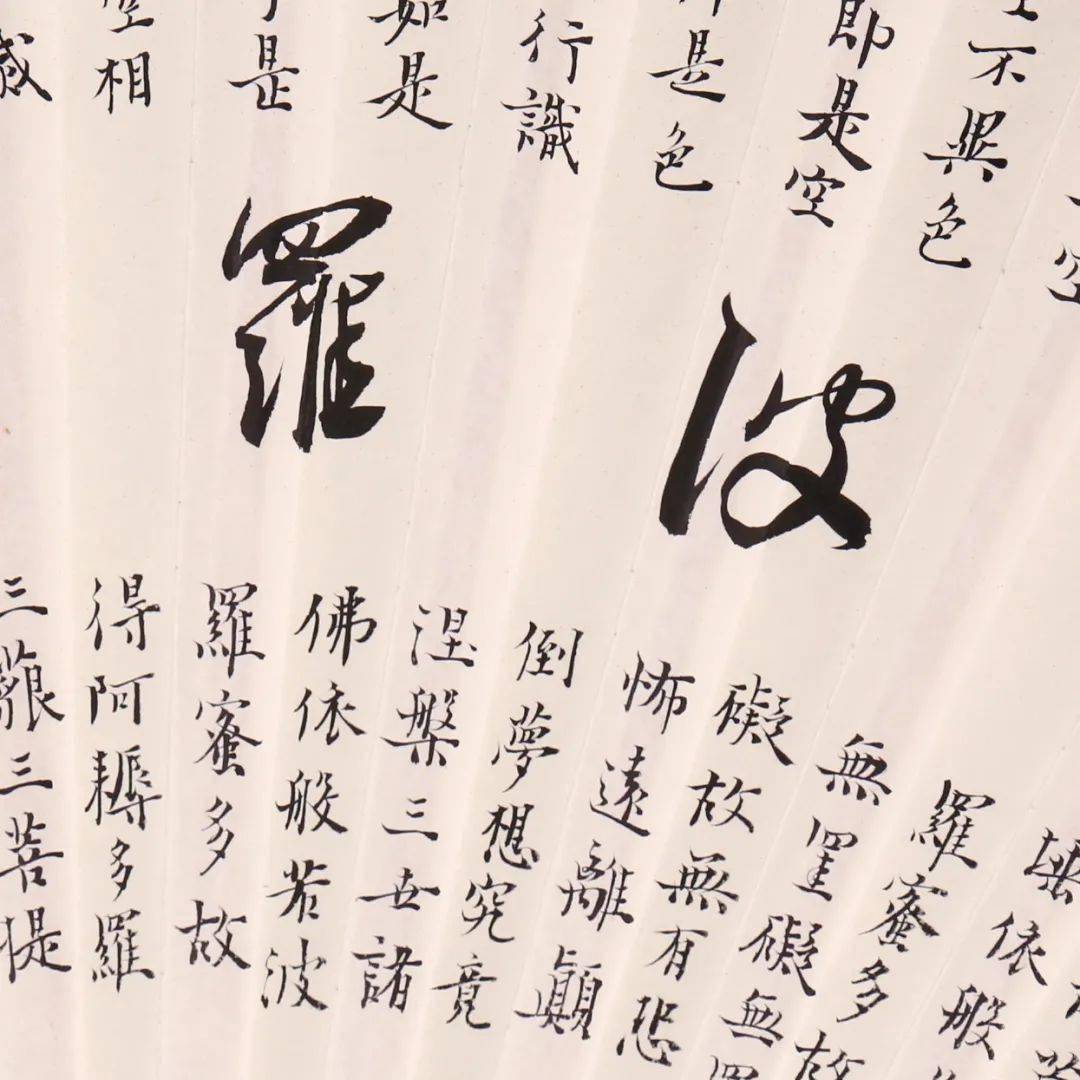 空
不異色
即是空
是色
行識
如是
是
空相
滅
波
羅
埵依般
羅蜜多故
無罣礙無罣
礙故無有恐
怖遠離顛
倒夢想究竟
涅槃三世諸
佛依般若波
羅蜜多故
得阿耨多羅
三藐三菩提